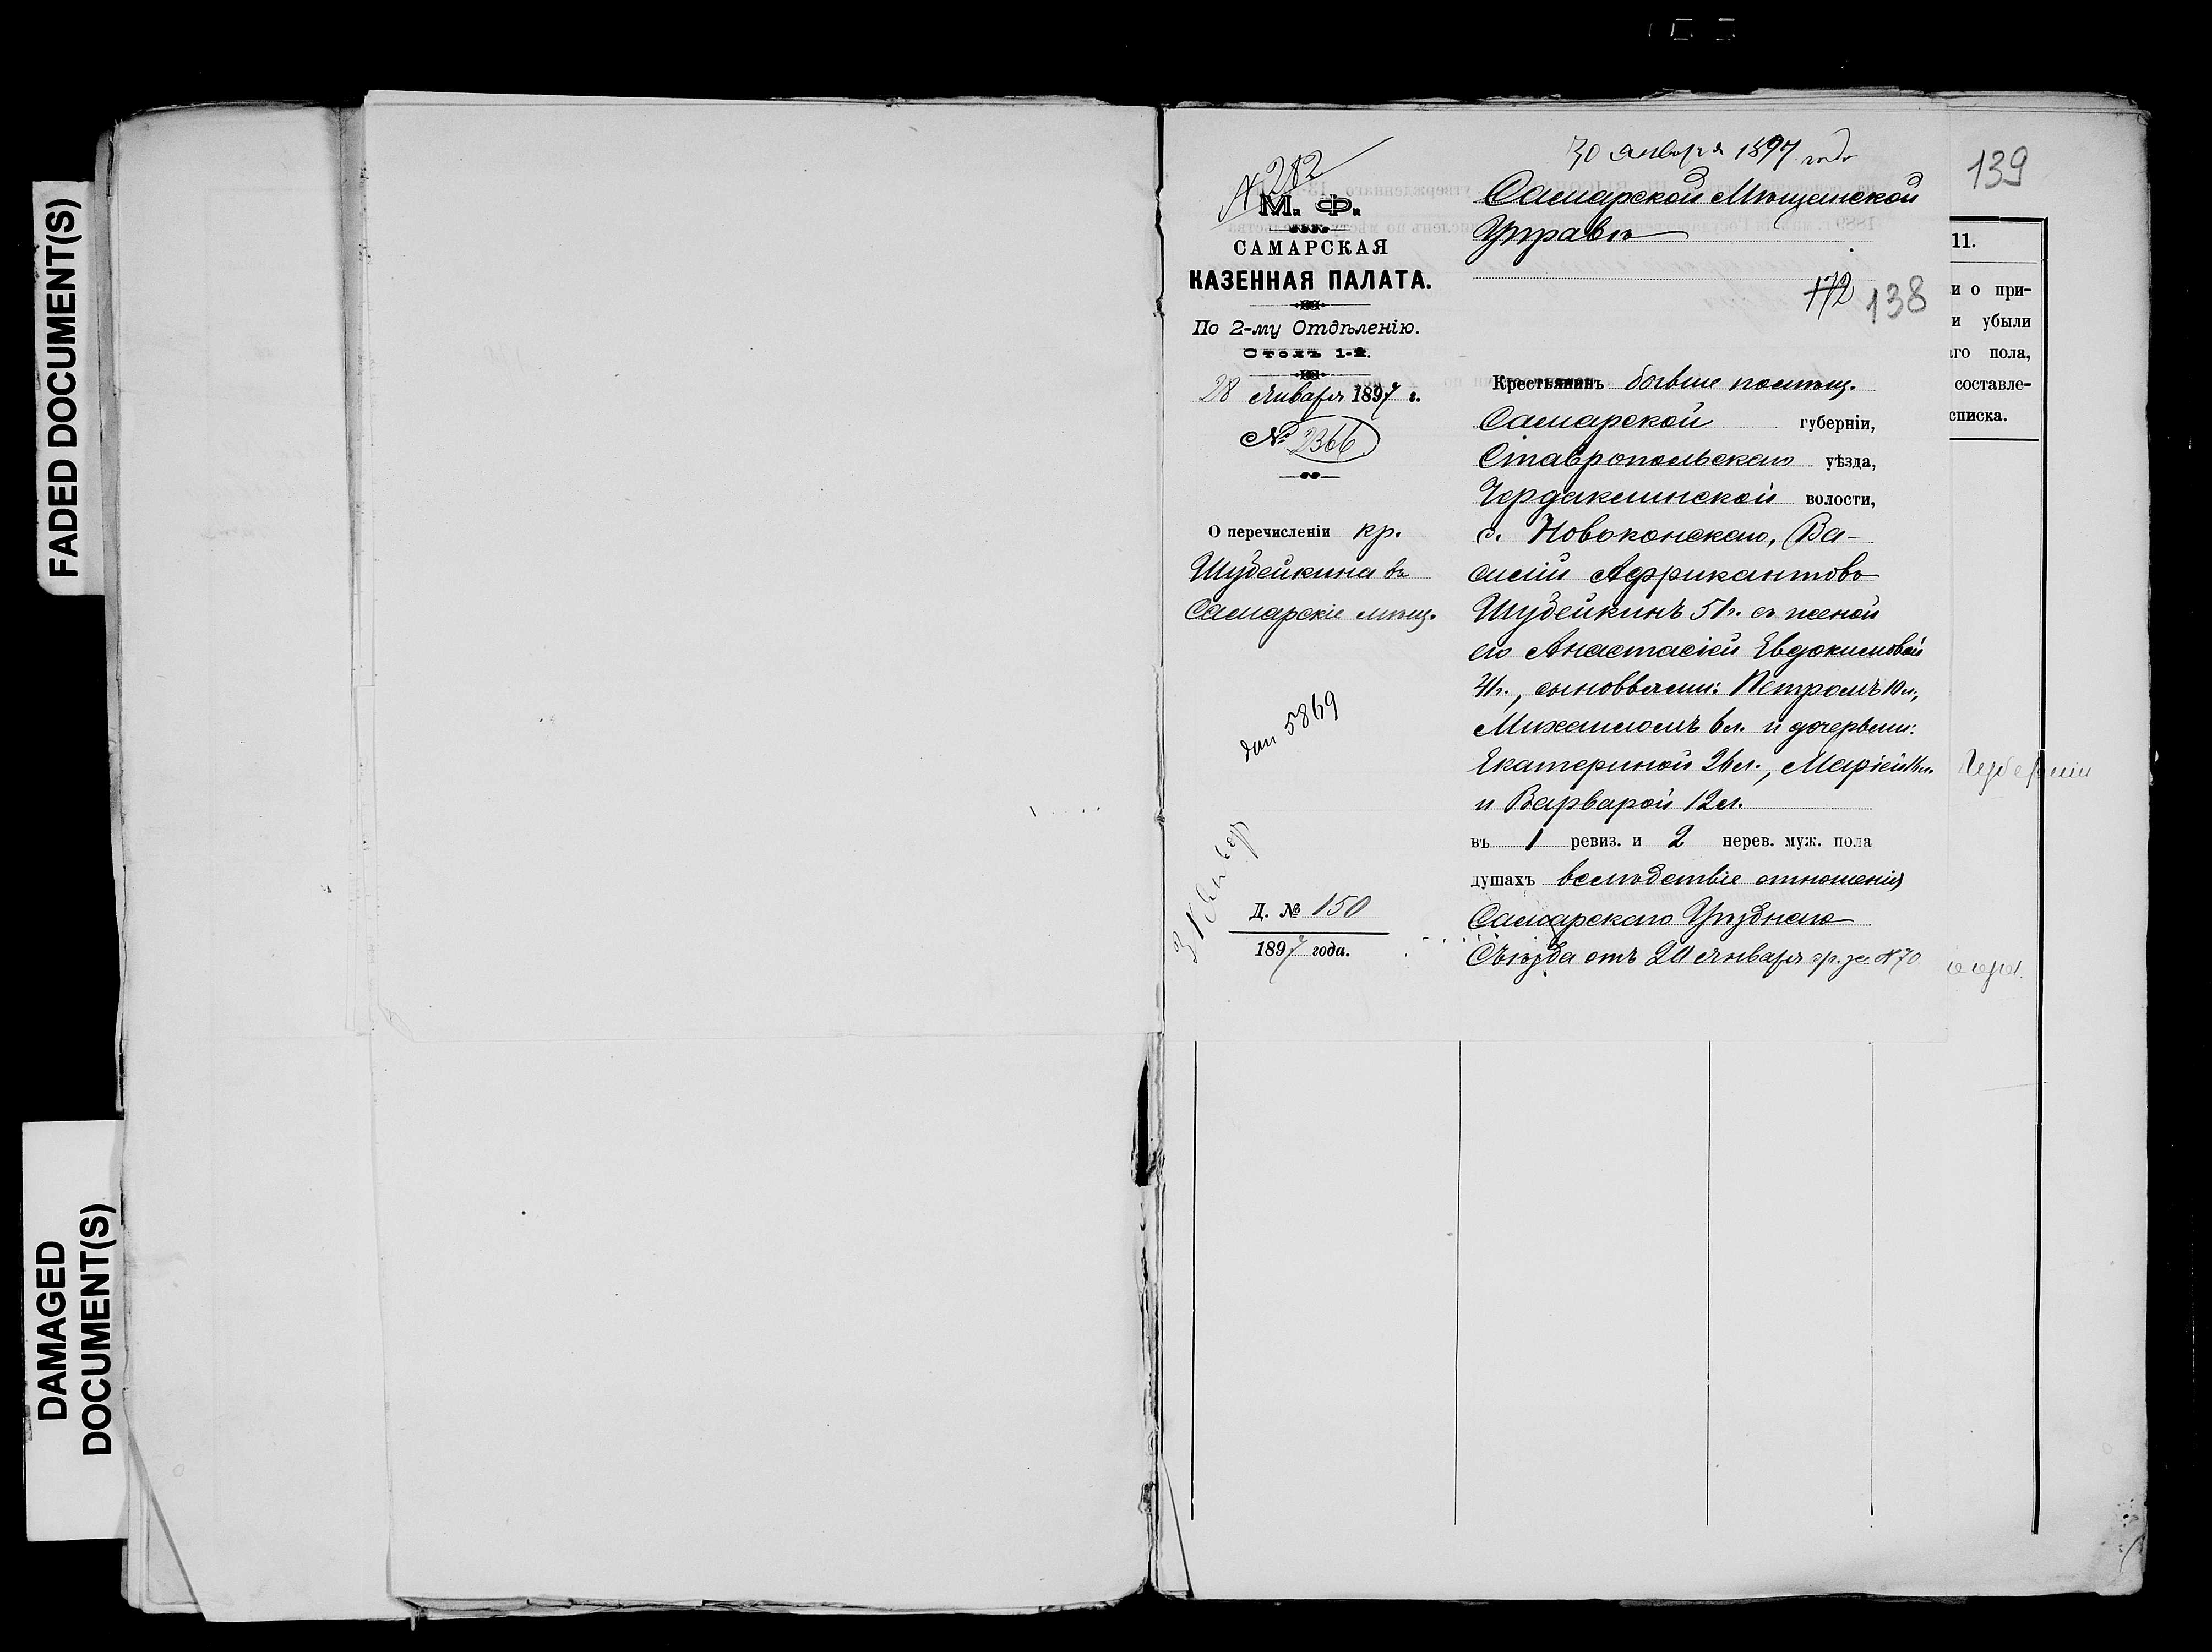 FADED DOCUMENT(S)
DAMAGED
DOCUMENT(S)
№ 282
М. Ф.
САМАРСКАЯ
КАЗЕННАЯ ПАЛАТА.
По 2-му Отдѣленію.
Столъ 1-й.
28 Января 1897 г.
№ 2366
О перечисленіи кр.
Шудейкина въ
Самарскіе мѣщ.
5869
Д. № 150
1897 года.
30 января 1897 года
Самарской Мѣщанской
Управѣ
172 138
Крестьянинъ бывше помѣщ.
Самарской губерніи,
Ставропольскаго уѣзда,
Чердаклинской волости,
с. Новоконскаго, Ва-
силій Африкантовъ
Шудейкинъ 51г. съ женой
его Анастасіей Евдокимовой
41г., сыновьями: Петромъ 10л.,
Михаиломъ 6л. и дочерьми:
Екатериной 26л., Маріей 16л.
и Варварой 12л.
въ 1 ревиз. и 2 нерев. муж. пола
душахъ вслѣдствіе отношенія
Самарскаго Уѣзднаго
Съѣзда отъ 20 января сг. за №70
139
11.
и о при-
и убыли
аго пола,
составле-
списка.
Губерніи